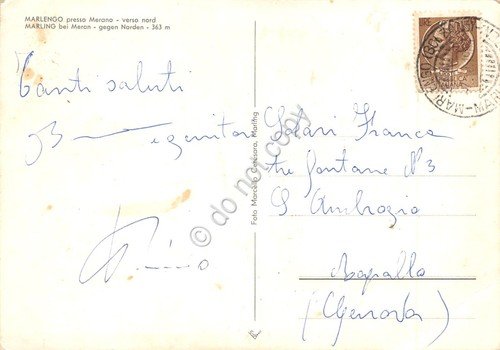 MARLENGO presso Merano - verso nord
MARLING bei Meran - gegen Norden - 363 m
Tanti saluti
e genitori
Foto Marcello Caresaro, Marling
Solari Franca
tre fontane N 3
S. Ambrogio
Rapallo
(Genova)
do not copy